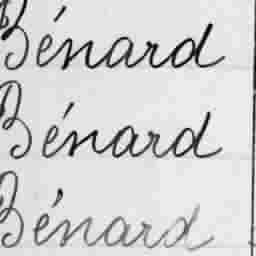 Bénard
Bénard
Bénard